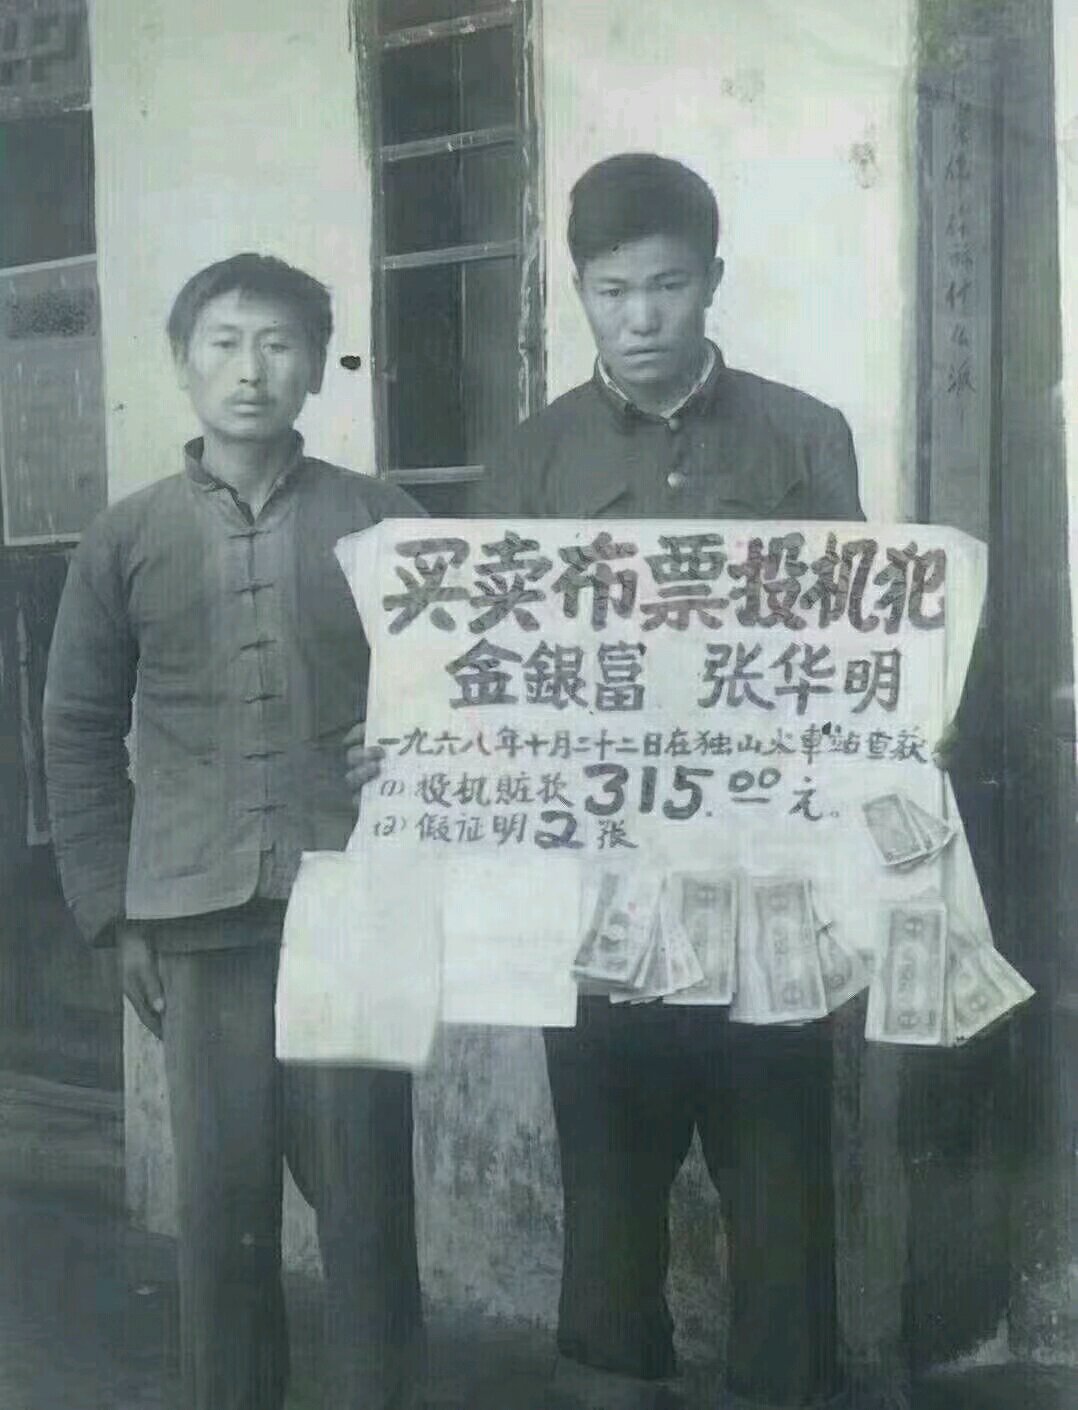 买卖布票投机犯
金銀富 张华明
一九六八年十月二十二日在独山火車站查获
(1)投机赃款315.00元。
(2)假证明2张